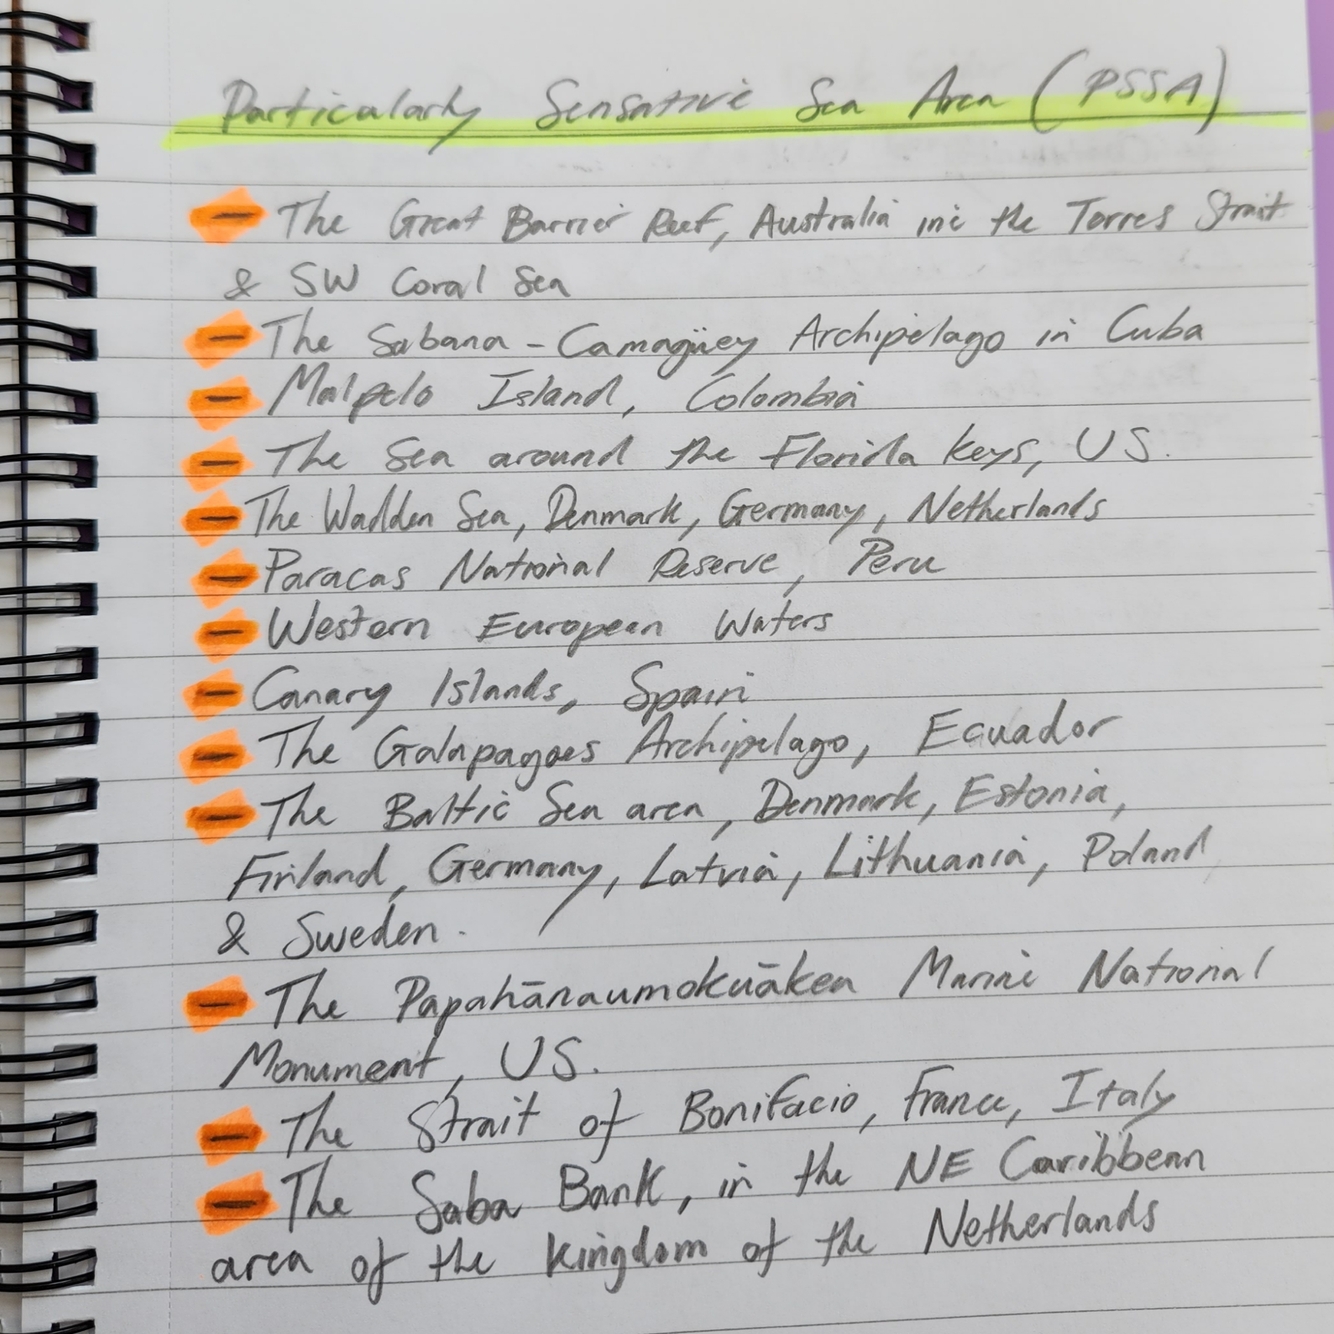 Particularly Sensative Sea Area (PSSA)
- The Great Barrier Reef, Australia inc the Torres Strait
& SW Coral Sea
- The Sabana - Camagüey Archipelago in Cuba
- Malpelo Island, Colombia
- The Sea around the Florida keys, US.
- The Wadden Sea, Denmark, Germany, Netherlands
- Paracas National Reserve, Peru
- Western European Waters
- Canary Islands, Spain
- The Galapagoes Archipelago, Ecuador
- The Baltic Sea area, Denmark, Estonia,
Finland, Germany, Latvia, Lithuania, Poland
& Sweden.
- The Papahānaumokuākea Marine National
Monument, US.
- The Strait of Bonifacio, France, Italy
- The Saba Bank, in the NE Caribbean
area of the kingdom of the Netherlands